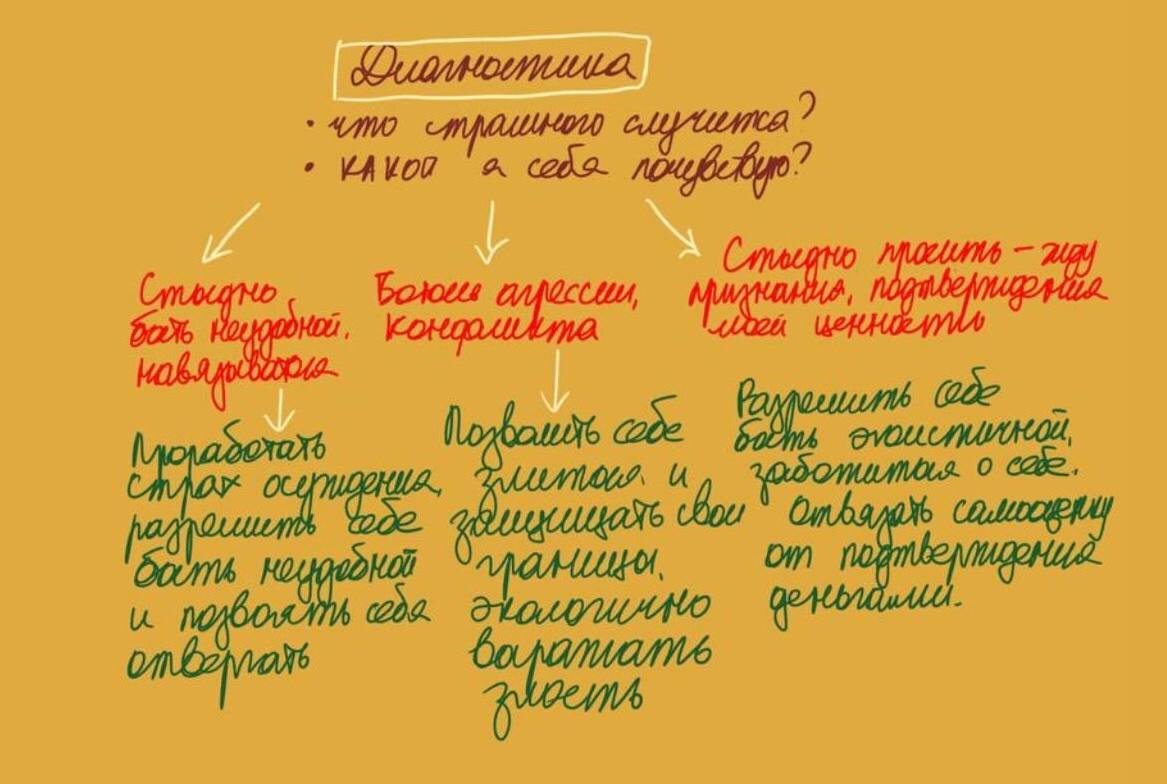 Диагностика
• что страшного случится?
• КАКОЙ я себя почувствую?
Стыдно
быть неудобной,
навязываться
Боюсь агрессии,
конфликта
Стыдно просить – жду
признания, подтверждения
моей ценности
Проработать
страх осуждения,
разрешить себе
быть неудобной
и позволять себя
отвергать
Позволить себе
злиться и
защищать свои
границы,
экологично
выражать
злость
Разрешить себе
быть эгоистичной,
заботиться о себе.
Отвязать самооценку
от подтверждения
деньгами.